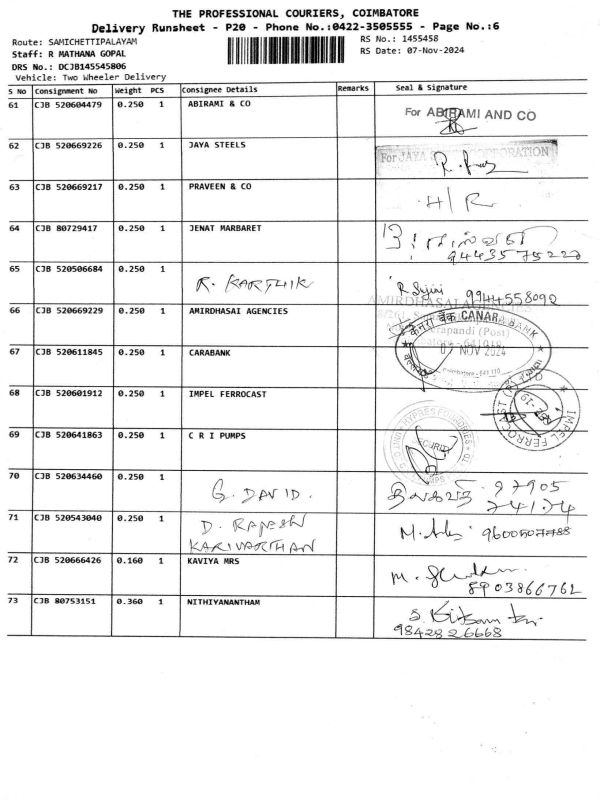 THE PROFESSIONAL COURIERS, COIMBATORE
Delivery Runsheet - P20 - Phone No.:0422-3505555 - Page No.:6
Route: SAMICHETTIPALAYAM
RS No.: 1455458
Staff: R MATHANA GOPAL
RS Date: 07-Nov-2024
DRS No.: DCJB145545806
Vehicle: Two Wheeler Delivery
S No Consignment No Weight PCS Consignee Details Remarks Seal & Signature
61 CJB 520604479 0.250 1 ABIRAMI & CO
For ABIRAMI AND CO
62 CJB 520669226 0.250 1 JAYA STEELS
For JAYA CORPORATION
63 CJB 520669217 0.250 1 PRAVEEN & CO
H/R
64 CJB 80729417 0.250 1 JENAT MARBARET
65 CJB 520506684 0.250 1 R. KARTHIK
9944558092
66 CJB 520669229 0.250 1 AMIRDHASAI AGENCIES
AMIRDHASAI AGENCIES
केनरा बैंक CANARA BANK
07 NOV 2024
67 CJB 520611845 0.250 1 CARABANK
68 CJB 520601912 0.250 1 IMPEL FERROCAST
IMPEL FERROCAST
69 CJB 520641863 0.250 1 C R I PUMPS
SECURITY
70 CJB 520634460 0.250 1 G. DAVID.
திலகவதி 97905
74174
71 CJB 520543040 0.250 1 D. RAJESH
KARIVARTHAN
9600507788
72 CJB 520666426 0.160 1 KAVIYA MRS
8903866762
73 CJB 80753151 0.360 1 NITHIYANANTHAM
9842826668